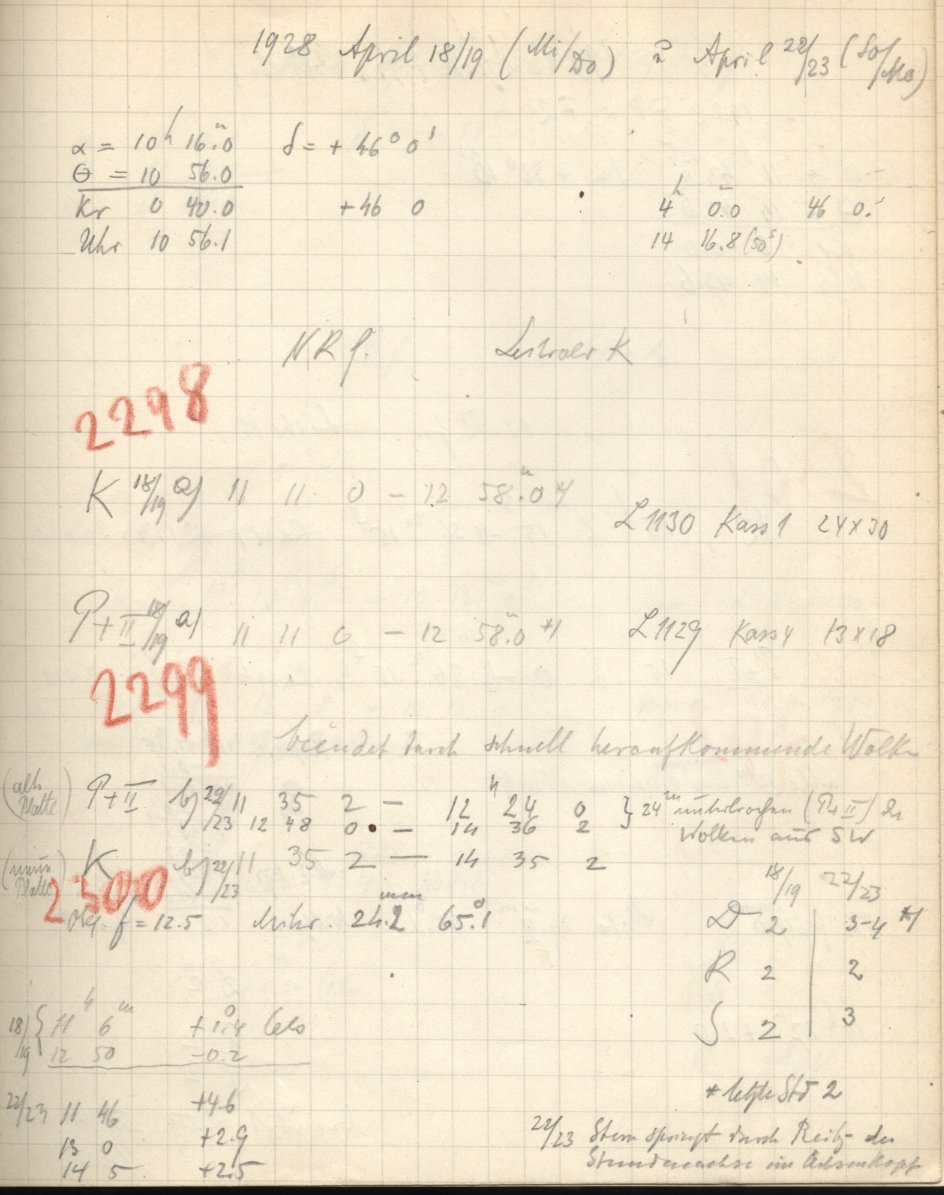 1928 April 18/19 (Mi/Do) April 22/23 (So/Mo)
α = 10h 16.m0 δ = + 46° 0'
Θ = 10 56.0
Kr 0 40.0 +46 0 4h 0.m0 46 0.
Uhr 10 56.1 14 16.8 (50s)
2298
K 18/19 a) 11 11 0 – 12 58.m0 *)
L1130 Kass 1 24x30
P+II 18/19 a) 11 11 0 – 12 58.m0 *) L1129 Kass 4 13x18
2299
beendet durch schnell heraufkommende Wolken
(alte Platte) P+II b) 22/23 11 35 2 – 12h 24 0 } 24m unterbrochen (P+II)
12 48 0 – 14 36 2 Wolken aus SW
Platte) K b) 22/23 11 35 2 – 14 35 2
2300
f = 12.5 Mikr. 24.2 mm 65.°1
18/19 22/23
D 2 3-4 *)
R 2 2
S 2 3
18/19 { 11h 6m +1.°4 Cels
12 50 -0.2
22/23 11 46 +4.6
13 0 +2.9
14 5 +2.5
* letzte Std 2
22/23 Stern springt durch Reibg der
Stundenachse im Achsenkopf